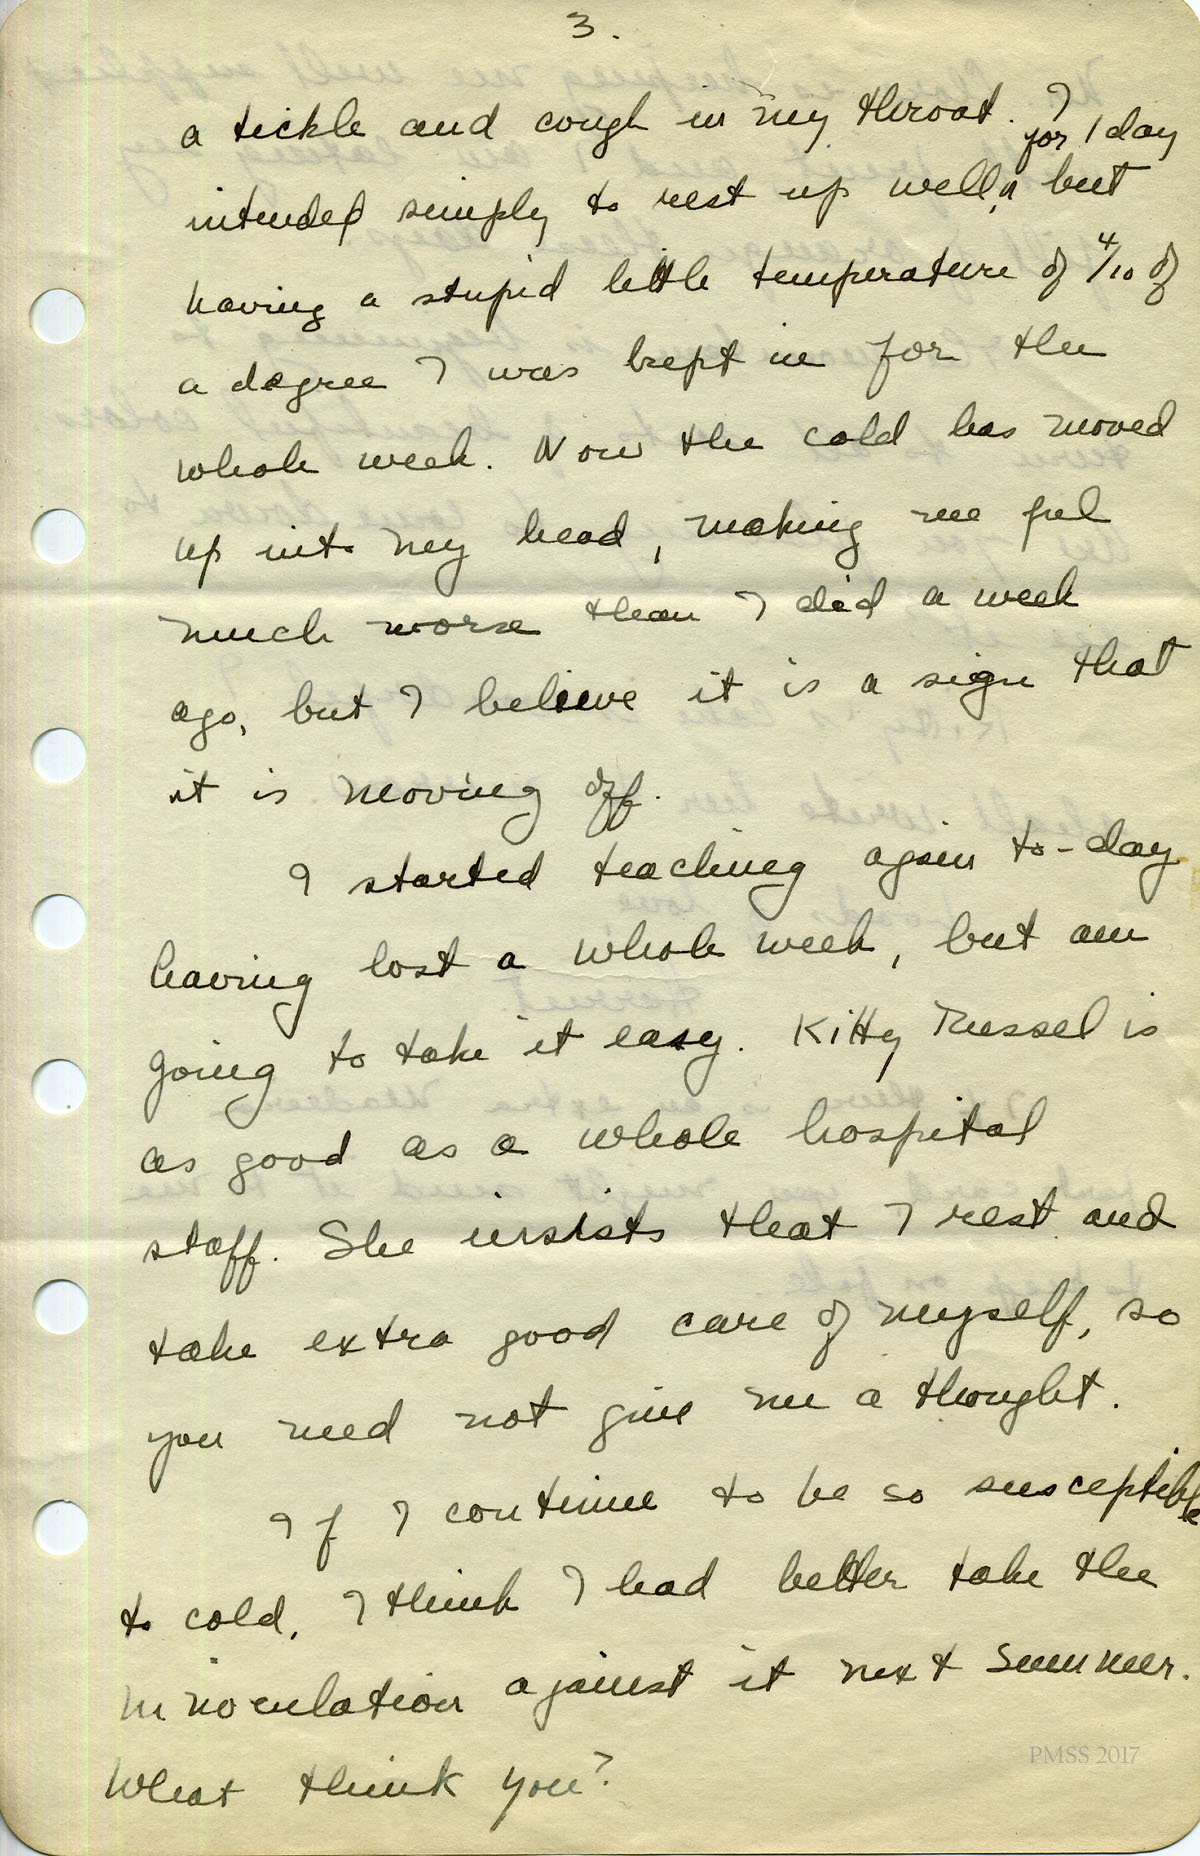 3.
a tickle and cough in my throat. I
for 1 day
intended simply to rest up well, but
having a stupid little temperature of 4/10 of
a degree I was kept in for the
whole week. Now the cold has moved
up into my head, making me feel
much worse than I did a week
ago, but I believe it is a sign that
it is moving off.
I started teaching again to-day
having lost a whole week, but am
going to take it easy. Kitty Russel is
as good as a whole hospital
staff. She insists that I rest and
take extra good care of myself, so
you need not give me a thought.
If I continue to be so susceptible
to cold, I think I had better take the
innoculation against it next summer.
What think you?
PMSS 2017